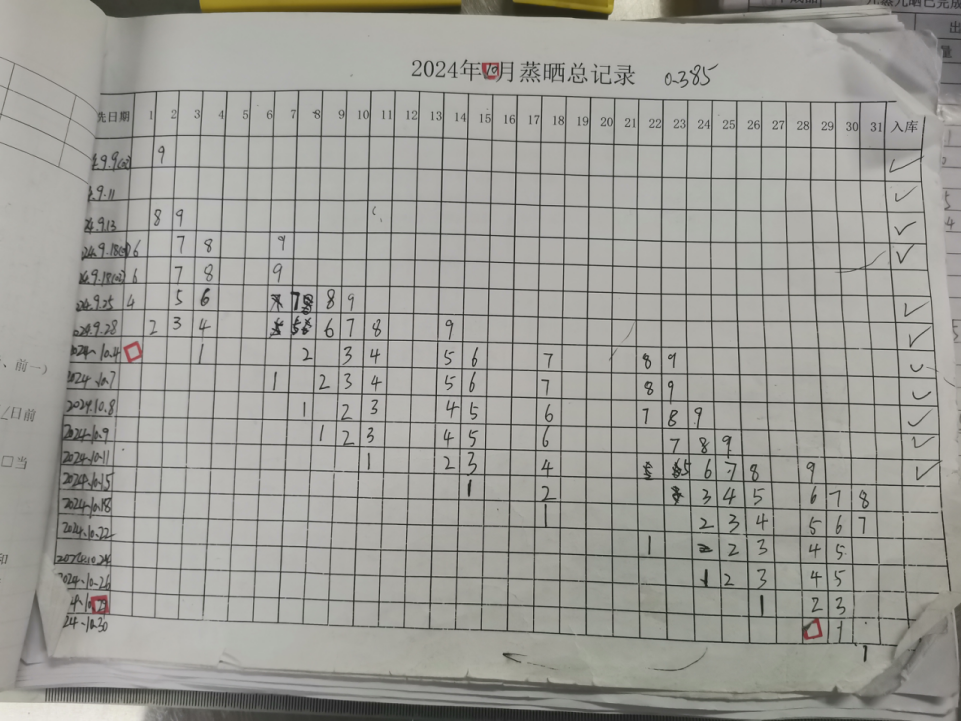 2024年10月蒸晒总记录 0.385
先日期 1 2 3 4 5 6 7 8 9 10 11 12 13 14 15 16 17 18 19 20 21 22 23 24 25 26 27 28 29 30 31 入库
9 ✓
9.11 ✓
24.9.13 8 9 ✓
24.9.18 6 7 8 9 ✓
24.9.18 6 7 8 9
24.9.25 4 5 6 7 8 9 ✓
2024.9.28 2 3 4 5 6 7 8 9 ✓
2024.10.4 1 2 3 4 5 6 7 8 9 ✓
2024.10.7 1 2 3 4 5 6 7 8 9 ✓
2024.10.8 1 2 3 4 5 6 7 8 9 ✓
2024.10.9 1 2 3 4 5 6 7 8 9 ✓
2024.10.11 1 2 3 4 5 6 7 8 9 ✓
2024.10.15 1 2 3 4 5 6 7 8
2024.10.18 1 2 3 4 5 6 7
2024.10.22 1 2 3 4 5
2024.10.24 1 2 3 4 5
2024.10.26 1 2 3
1
24.10.30 1
、前一）
日前
□当